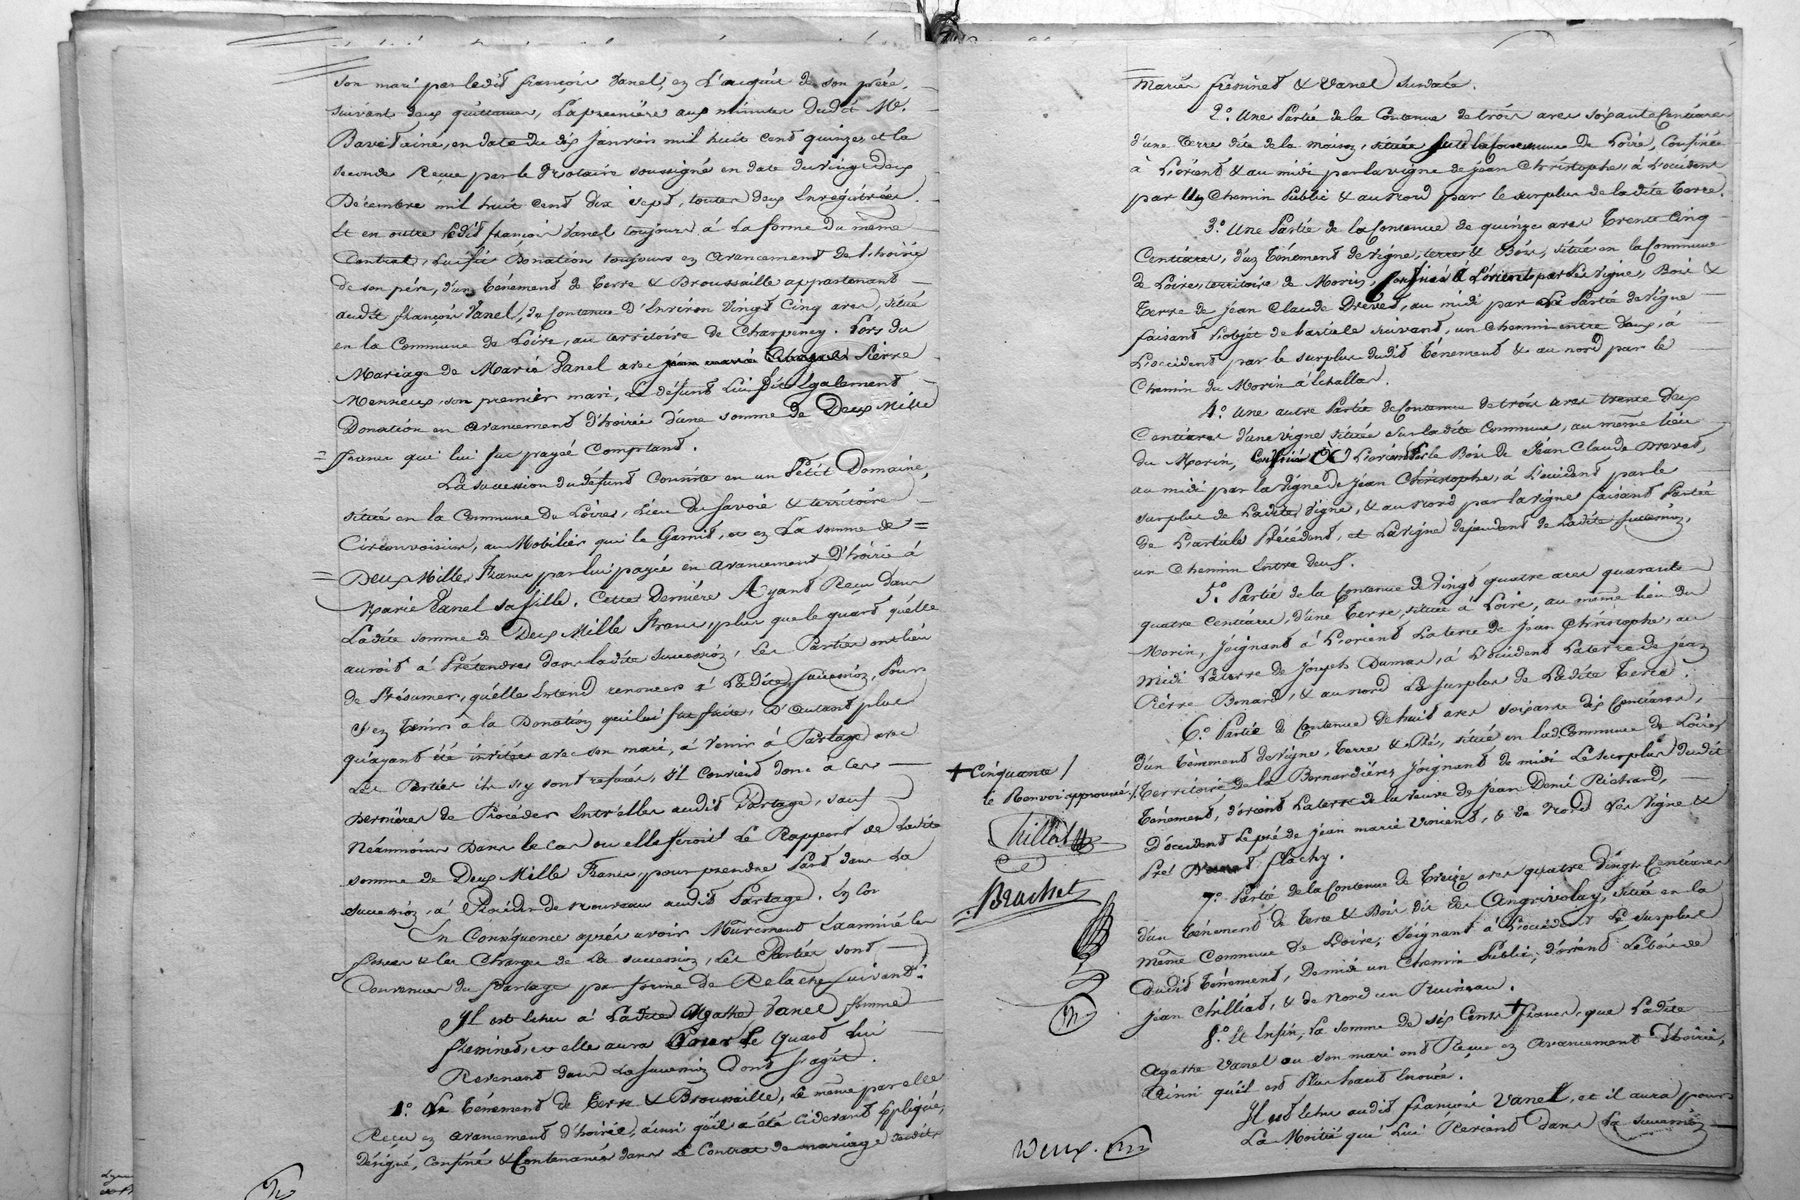 son mari par ledit françois Vanel, en l'acquit de son père,
suivant deux quittances, la première aux minutes dudit Me
en date du dix janvier mil huit cent quinze et la
seconde Reçue par le Notaire soussigné en date du vingt deux
Décembre mil huit cent dix sept, toutes deux Enrégistrées.
Et en outre ledit françois Vanel toujours à la forme du même
Contrat, lui fit Donation toujours en avancement de l'hoirie
de son père, d'un Ténement de Terre & Broussaille appartenant
audit françois Vanel, du contenue D'Environ Vingt Cinq ares, situé
en la Commune de Loire, au territoire de Charpeney. Lors du
Mariage de Marie Vanel avec Pierre
Monnieux, son premier mari, le défunt lui fit Egalement
Donation en avancement d'hoirie d'une somme de Deux Mille
francs qui lui fut payée Comptant.
La succession du défunt Consiste en un Petit Domaine,
située en la Commune de Loires, Lieu de Savoie & territoire
Circonvoisins, au Mobilier qui le Garnit, et en La somme de
Deux Mille Francs par lui payée en avancement D'hoirie à
Marie Vanel sa fille. Cette Dernière Ayant Reçu dans
Ladite somme de Deux Mille Francs, plus que le quart qu'elle
auroit à Prétendre dans ladite succession, Les Parties ont lieu
de Présumer, qu'elle Entend renoncer à Ladite succession, pour
s'en tenir à la Donation qui lui fut faite, D'autant plus
qu'ayant été invitée avec son mari, à venir à Partage avec
Les Parties ils s'y sont refusés, Il Convient donc à ces
Dernières de Procéder Entr'elles audit Partage, sauf
Néanmoins Dans le cas ou elle feroit Le Rapport de Ladite
somme de Deux Mille Francs, pour prendre Part dans La
succession, à Procéder de nouveau audit Partage. En Con
En Conséquence après avoir Mûrement Examiné les
forces & les Charges de La succession, Les Parties sont
Convenues du Partage par forme de Relâche suivants.
Il est échu à Ladite Agathe Vanel femme
fressinet, et elle aura Pour Le Quart lui
Revenant dans La succession dont s'agit.
1.° Le Ténement de Terre & Broussaille, le même par elle
Reçu en avancement d'hoirie, ainsi qu'il a été cidevant Expliqué,
Désigné, Confiné & Contenancé dans Le Contrat de mariage desdits
Mariés fressinet & Vanel susdaté.
2.° Une Partie de la Contenue de trois ares soixante Centiares
d'une Terre dite de la maison, située Commune de Loire, Confinée
à L'orient & au midi par la vigne de jean Christophe, à L'occident
par Un Chemin Public & au Nord par le surplus de ladite Terre.
3.° Une Partie de la Contenue de quinze ares Trente Cinq
Centiares, d'un Ténement de Vigne, terre & Bois, située en la Commune
de Loire, territoire de Morin, Confiné à L'orient par Les Vigne, Bois &
Terre de jean Claude Drevet, au midi par La Partie de Vigne
faisant L'objet de l'article suivant, un Chemin entre deux, à
L'occident par le surplus dudit Ténement & au nord par le
Chemin du Morin à Echallas.
4.° Une autre Partie de Contenue de trois ares trente Deux
Centiares d'une vigne située sur ladite Commune, au même lieu
du Morin, Confinée à L'orient Par le Bois de Jean Claude Drevet,
au midi par la Vigne de Jean Christophe, à L'occident par le
surplus de Ladite Vigne, & au Nord par la vigne faisant Partie
de L'article Précédent, et La vigne dépendant de Ladite succession,
un Chemin Entre deux.
5.° Partie de la Contenue de Vingt quatre ares quarante
quatre Centiares, d'une Terre, située à Loire, au même lieu du
Morin, Joignant à L'orient La terre de jean Christophe, au
midi La terre de Joseph Dumas, à L'occident La terre de jean
Pierre Bonard, & au nord Le surplus de Ladite Terre.
6.° Partie de Contenue de huit ares soixante dix Centiares,
d'un Ténement de Vigne, Terre & Pré, située en lad. Commune de Loire,
Territoire de la Bernardière, Joignant de midi Le surplus dudit
Ténement, d'orient La terre de la veuve de Jean Denis Richard,
D'occident Le pré de Jean marie Vincent, & de Nord Les Vigne &
Pré flachy.
7.° Partie de la Contenue de Treize ares quatre Vingt Centiares
d'un Ténement de Terre & Bois, dit des Angrivolay, située en la
même Commune de Loire, Joignant à L'occident Le surplus
dudit Ténement, De midi un Chemin Public, d'orient Le bois de
Jean Chilliat, & de Nord un Ruisseau.
8.° Et Enfin, La somme de six Cents + francs, que Ladite
Agathe Vanel ou son mari ont Reçue en avancement d'hoirie,
Ainsi qu'il est Plus haut Enoncé.
Il est échu audit françois Vanel, et il aura pour
La Moitié qui Lui Revient Dans La succession
+ Cinquante /
le Renvoi approuvé /.
Brachet
Deux.